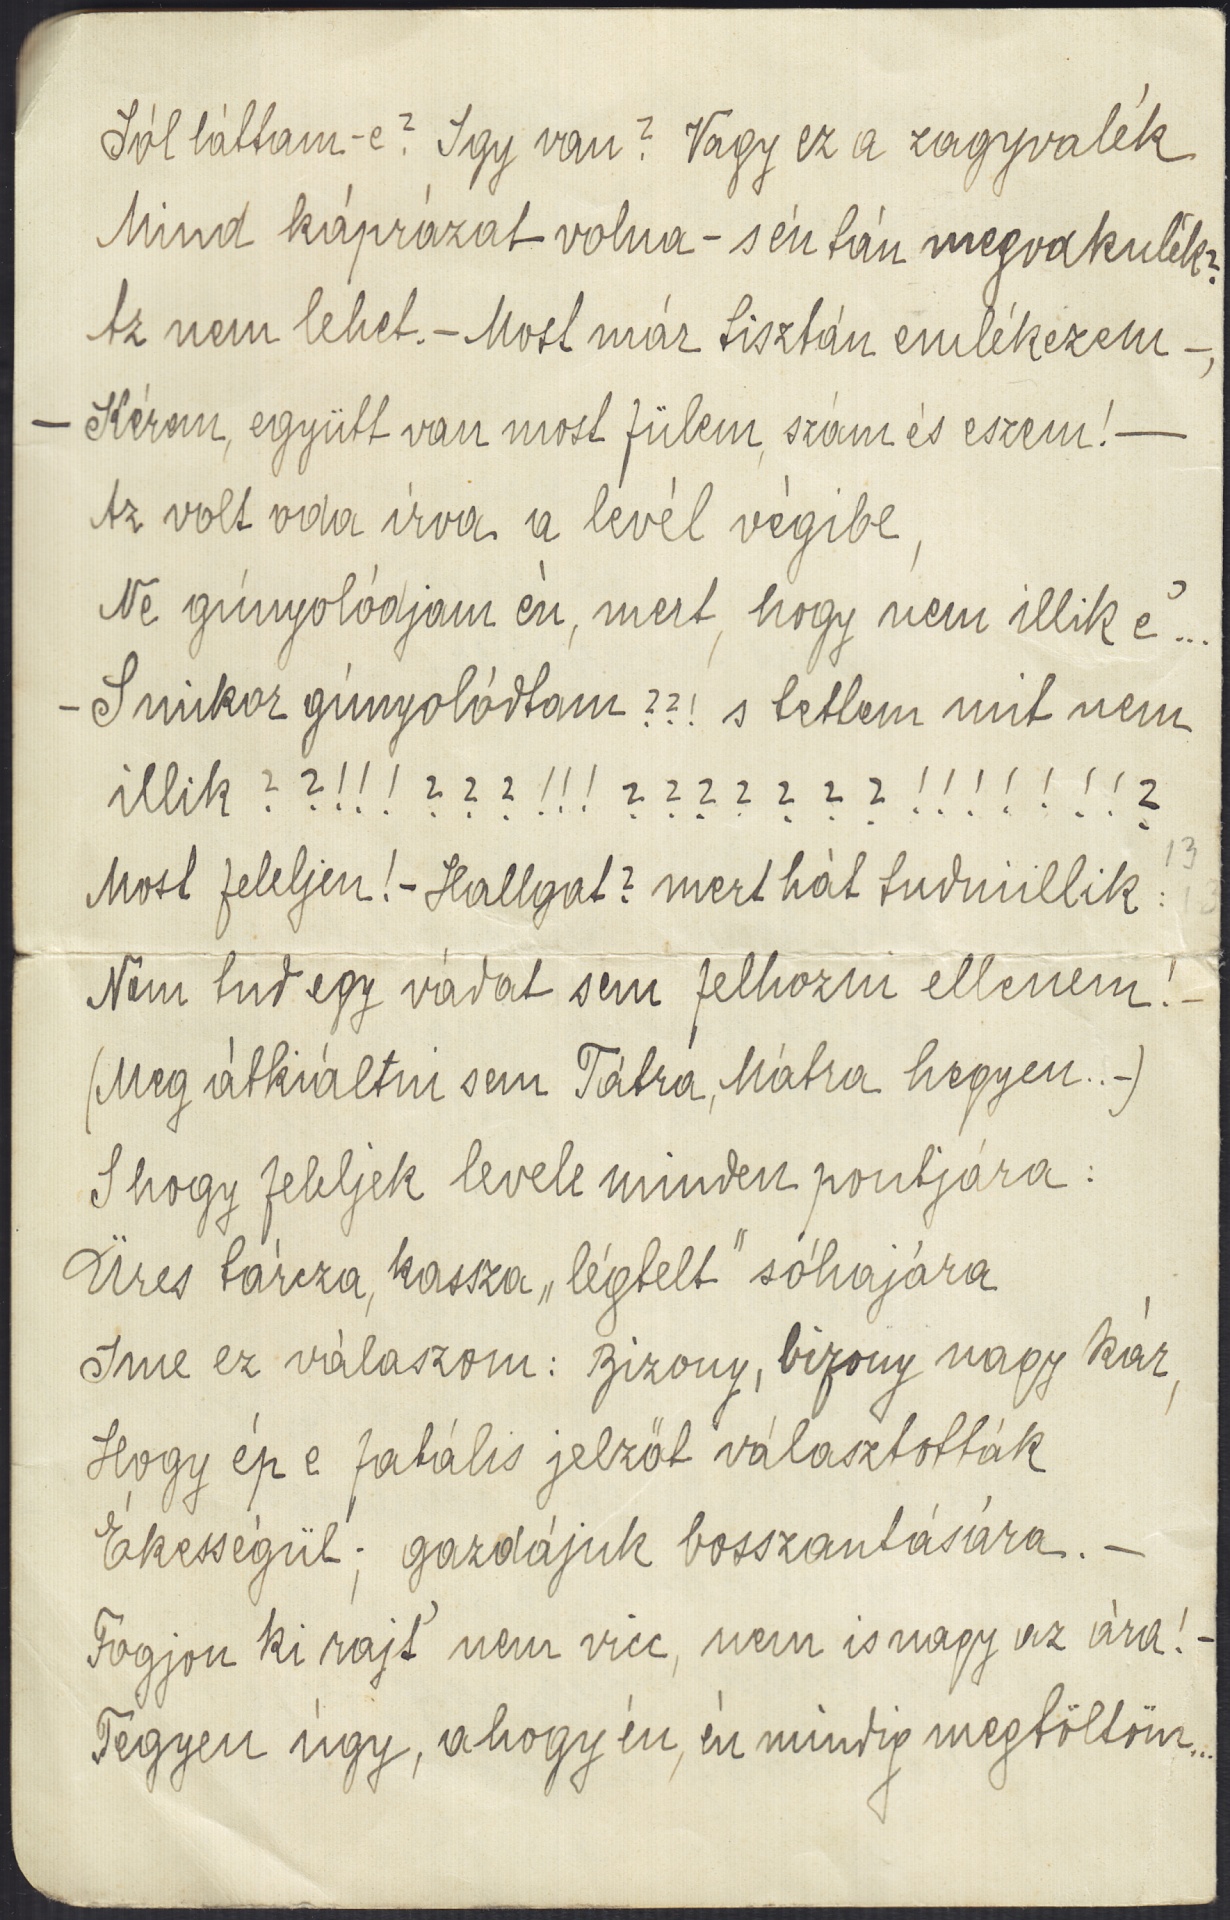 Jól láttam-e? Igy van? Vagy ez a zagyvalék
Mind káprázat volna – s én tán megvakulék?
Az nem lehet. – Most már tisztán emlékezem –,
– Kérem, együtt van most fülem, szám és eszem! —
Az volt oda írva a levél végibe,
Ne gúnyolódjam én, mert, hogy nem illik e' ...
– S mikor gúnyolódtam ??! s tettem mit nem
illik ? ?!!! ? ? ? !!! ? ? ? ? ? ? ? !!!!!!! ?
Most feleljen! – Hallgat? mert hát tudniillik :
13
13
Nem tud egy vádat sem felhozni ellenem! –
(Meg átkiáltni sem Tátra, Mátra hegyen.. –)
S hogy feleljek levele minden pontjára :
Üres tárcza, kassza „légtelt" sóhajára
Ime ez válaszom : Bizony, bizony nagy kár,
Hogy ép e fatális jelzőt választották
Ékességül ; gazdájuk bosszantására. –
Fogjon ki rajt' nem vicc, nem is nagy az ára! –
Tegyen úgy, ahogy én, én mindig megtöltöm...